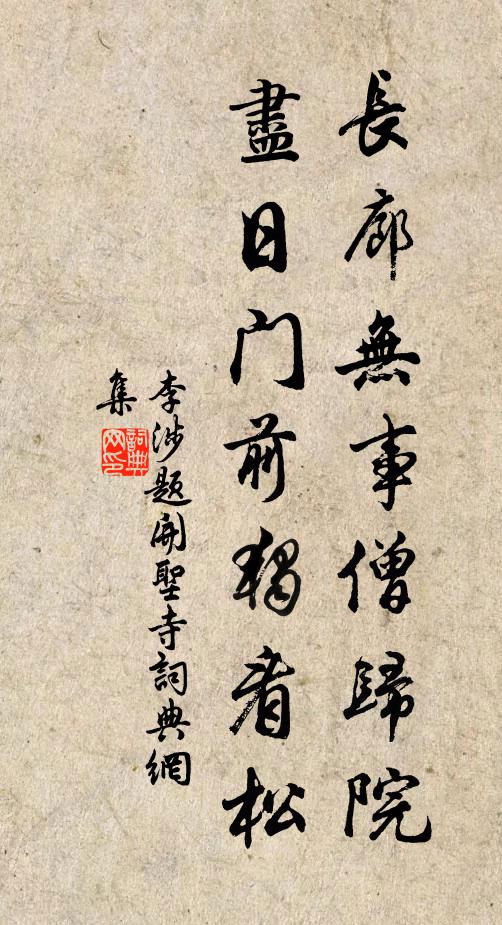 長廊無事僧歸院
盡日门前獨看松
李涉題開聖寺詞典網
集
詞典
网印